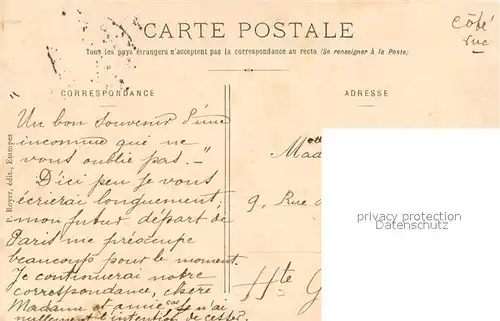 CARTE POSTALE
côté
vue
Tous les pays étrangers n'acceptent pas la correspondance au recto (Se renseigner à la Poste)
CORRESPONDANCE
ADRESSE
P. Royer, édit., Etampes
Un bon souvenir d'une
inconnue qui ne
vous oublie pas. –"
D'ici peu je vous
écrierai longuement;
mon futur départ de
Paris me préoccupe
beaucoup pour le moment.
Je continuerai notre
correspondance, chère
Madame et amie car je n'ai
nullement l'intention de cesser.
Mad
9, Rue
Hte G
privacy protection
Datenschutz